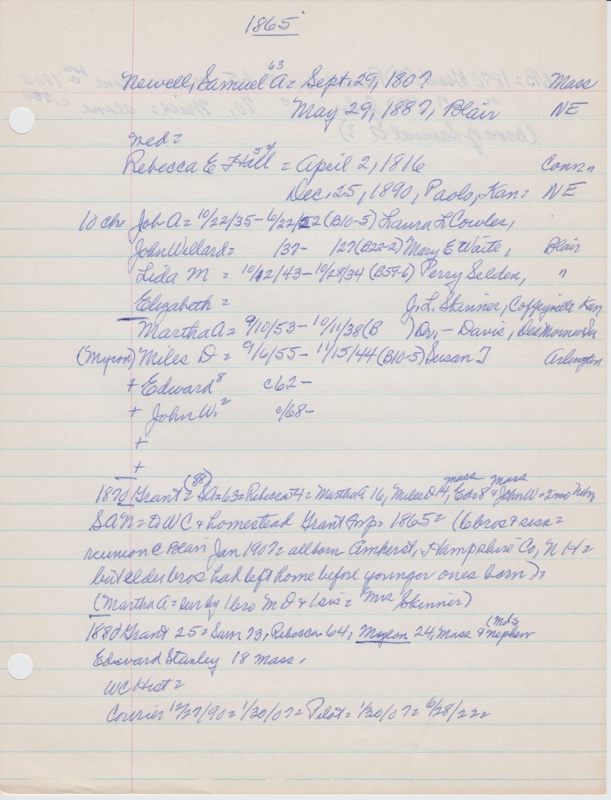 1865
Newell, Samuel A = Sept. 29, 1807 Mass
63
May 29, 1887, Blair NE
med =
Rebecca E Hall = April 2, 1816 Conn
54
Dec. 25, 1890, Paolo, Kan = NE
10 che Job A = 10/22/35 - 6/22/22 (B10-5) Laura L Cowles,
John Willard = /37 - /27 (B22-2) Mary E Waite, Blair
Lida M = 10/12/43 - 10/28/34 (B59-6) Perry Selden, "
Elizabeth = J. L. Skinner, Coffeyville Kan
Martha A = 9/10/53 - 10/11/38 (B ) Dr, - Davis, Des Moines
(Myron) Miles D = 9/6/55 - 11/15/44 (B10-5) Susan J Arlington
+ Edward 8 c62 -
+ John W. 2 c/68 -
+
+
1870 Grant = (88) SA = 63 = Rebecca = Martha A 16, Miles D 14, Ed = 8 mass & John W = 2 mass
SAN = to WC & homestead Grant Twp. 1865 = (6 bros & siss =
reunion c Blair Jan 1907 = all born Amherst, Hampshire Co, NH =
but elder bros had left home before younger ones born) =
(Martha A = sur by 1 bro M D & 1 sis = Mrs Skinner)
1880 Grant 25 = Sam 73, Rebecca 64, Myron 24, Mass & nephew
Edward Stanley 18 Mass.
WC Hist =
Courier 12/27/90 = 1/30/07 = Pilot = 1/30/07 = 6/28/22 =